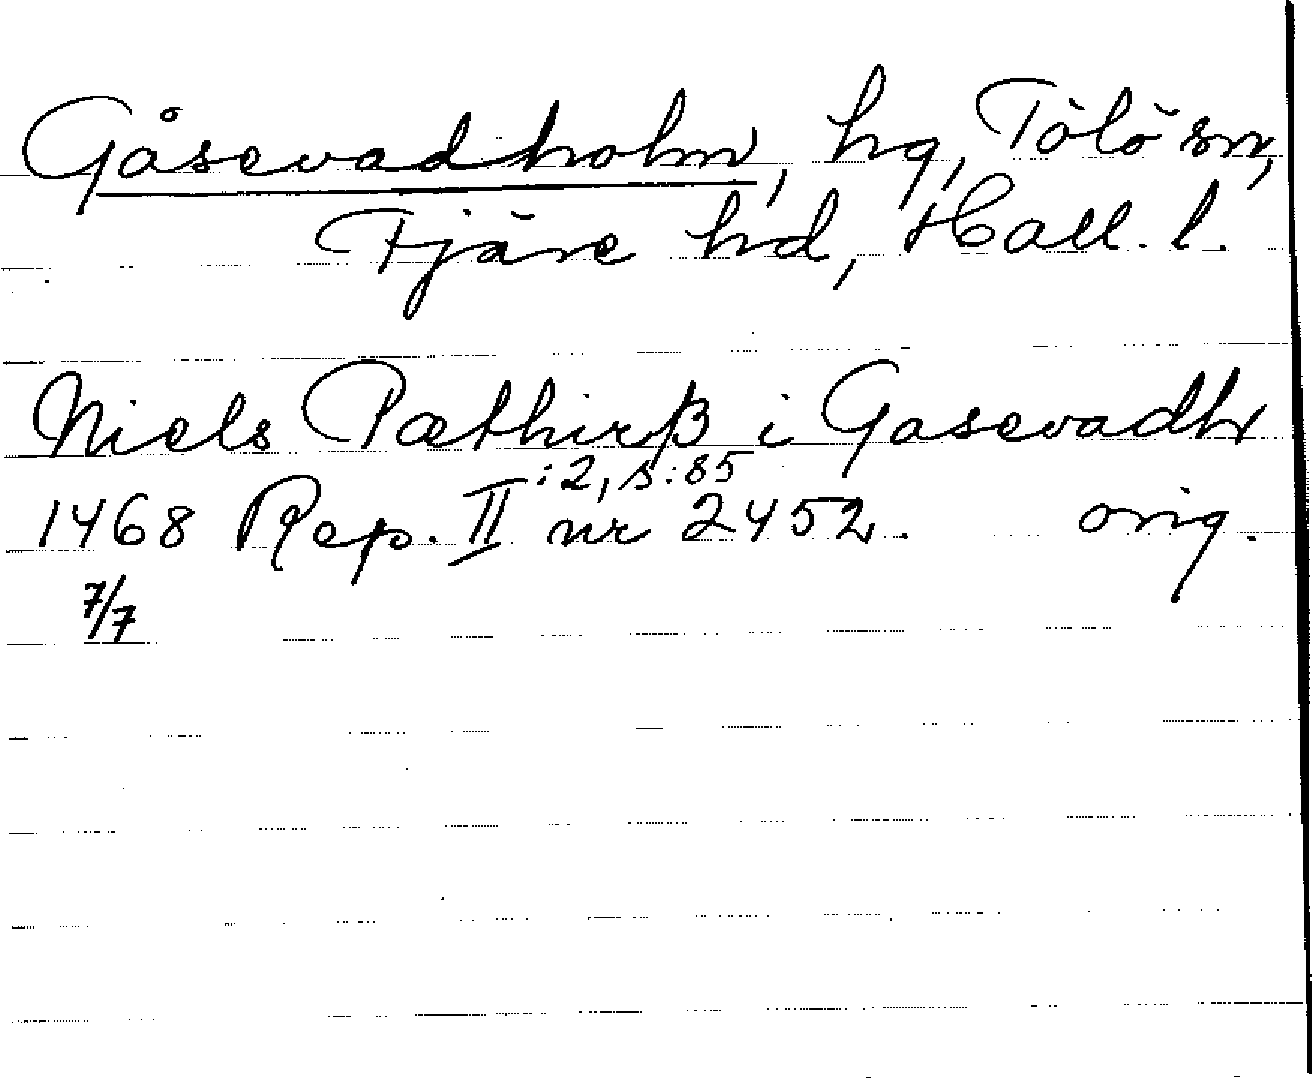 Gåsevadholm, hg, Tölö sn,
Fjäre hd, Hall. l.
Niels Pæthirß i Gasevadh
:2, s:85
1468 Rep. II nr 2452. orig.
7/7